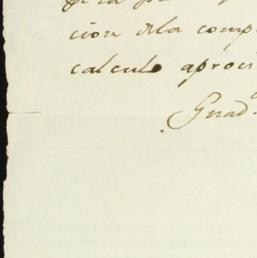 cion dela comp
calculo aproci
Guad.